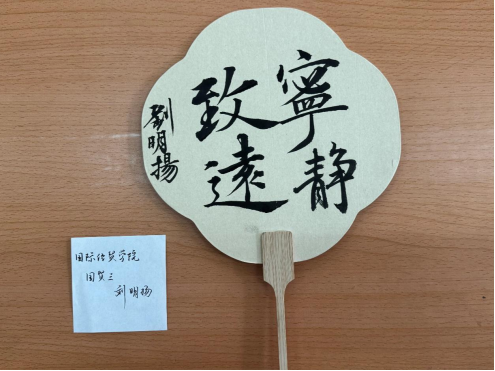 寧静
致遠
劉明揚
国际经贸学院
国贸三
刘明扬